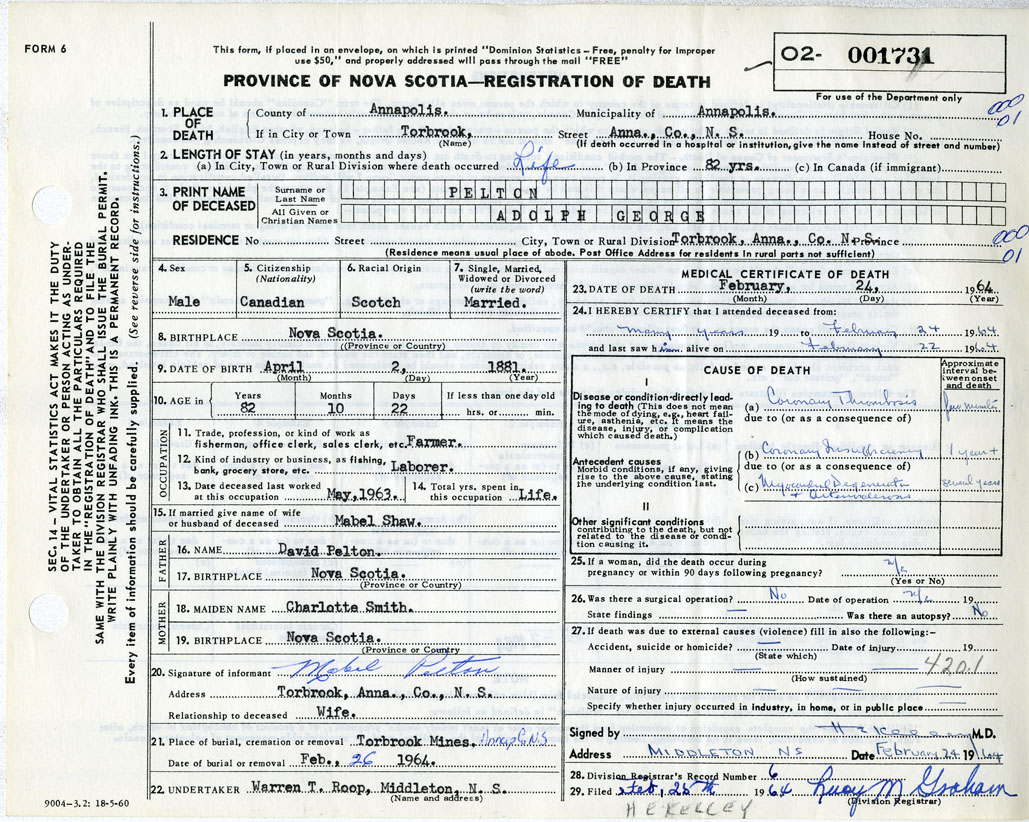 FORM 6
This form, if placed in an envelope, on which is printed "Dominion Statistics – Free, penalty for improper
use $50," and properly addressed will pass through the mail "FREE"
PROVINCE OF NOVA SCOTIA—REGISTRATION OF DEATH
02- 001731
For use of the Department only
000
01
1. PLACE OF DEATH
County of Annapolis. Municipality of Annapolis.
If in City or Town Torbrook, Street Anna., Co., N. S. House No.
(Name) (If death occurred in a hospital or institution, give the name instead of street and number)
2. LENGTH OF STAY (in years, months and days)
(a) In City, Town or Rural Division where death occurred Life (b) In Province 82 yrs. (c) In Canada (if immigrant)
3. PRINT NAME OF DECEASED
Surname or Last Name PELTON
All Given or Christian Names ADOLPH GEORGE
RESIDENCE No Street City, Town or Rural Division Torbrook, Anna., Co. N. S. Province
000
01
(Residence means usual place of abode. Post Office Address for residents in rural parts not sufficient)
4. Sex
Male
5. Citizenship
(Nationality)
Canadian
6. Racial Origin
Scotch
7. Single, Married,
Widowed or Divorced
(write the word)
Married.
8. BIRTHPLACE Nova Scotia.
((Province or Country)
9. DATE OF BIRTH April 2, 1881.
(Month) (Day) (Year)
10. AGE in
Years Months Days If less than one day old
82 10 22 hrs. or min.
OCCUPATION
11. Trade, profession, or kind of work as
fisherman, office clerk, sales clerk, etc. Farmer.
12. Kind of industry or business, as fishing,
bank, grocery store, etc. Laborer.
13. Date deceased last worked
at this occupation May, 1963.
14. Total yrs. spent in
this occupation Life.
15. If married give name of wife
or husband of deceased Mabel Shaw.
FATHER
16. NAME David Pelton.
17. BIRTHPLACE Nova Scotia.
(Province or Country)
MOTHER
18. MAIDEN NAME Charlotte Smith.
19. BIRTHPLACE Nova Scotia.
(Province or Country)
20. Signature of informant Mabel Pelton
Address Torbrook, Anna., Co., N. S.
Relationship to deceased Wife.
21. Place of burial, cremation or removal Torbrook Mines.
Date of burial or removal Feb., 26 1964.
22. UNDERTAKER Warren T. Roop, Middleton, N. S.
(Name and address)
MEDICAL CERTIFICATE OF DEATH
23. DATE OF DEATH February, 24, 1964
(Month) (Day) (Year)
24. I HEREBY CERTIFY that I attended deceased from:
many years 19 to February 24 1964
and last saw him alive on February 22 1964
CAUSE OF DEATH
Approximate
interval be-
tween onset
and death
I
Disease or condition directly lead-
ing to death (This does not mean
the mode of dying, e.g., heart fail-
ure, asthenia, etc. It means the
disease, injury, or complication
which caused death.)
(a) Coronary Thrombosis few minutes
due to (or as a consequence of)
Antecedent causes
Morbid conditions, if any, giving
rise to the above cause, stating
the underlying condition last.
(b) Coronary Insufficiency 1 year +
due to (or as a consequence of)
(c) Myocardial Degeneration several years
+ Arteriosclerosis
II
Other significant conditions
contributing to the death, but not
related to the disease or condi-
tion causing it.
25. If a woman, did the death occur during
pregnancy or within 90 days following pregnancy?
(Yes or No)
26. Was there a surgical operation? No Date of operation 19
State findings — Was there an autopsy? No
27. If death was due to external causes (violence) fill in also the following:–
Accident, suicide or homicide? — Date of injury 19
(State which)
Manner of injury — 420.1
(How sustained)
Nature of injury —
Specify whether injury occurred in industry, in home, or in public place
Signed by M.D.
Address MIDDLETON NS Date February 24 1964
28. Division Registrar's Record Number 6
29. Filed Feb, 25th 1964 Lucy M Graham
(Division Registrar)
H E KELLEY
SEC. 14 – VITAL STATISTICS ACT MAKES IT THE DUTY
OF THE UNDERTAKER OR PERSON ACTING AS UNDER-
TAKER TO OBTAIN ALL THE PARTICULARS REQUIRED
IN THE "REGISTRATION OF DEATH" AND TO FILE THE
SAME WITH THE DIVISION REGISTRAR WHO SHALL ISSUE THE BURIAL PERMIT.
WRITE PLAINLY WITH UNFADING INK. THIS IS A PERMANENT RECORD.
Every item of information should be carefully supplied. (See reverse side for instructions.)
9004–3.2: 18-5-60